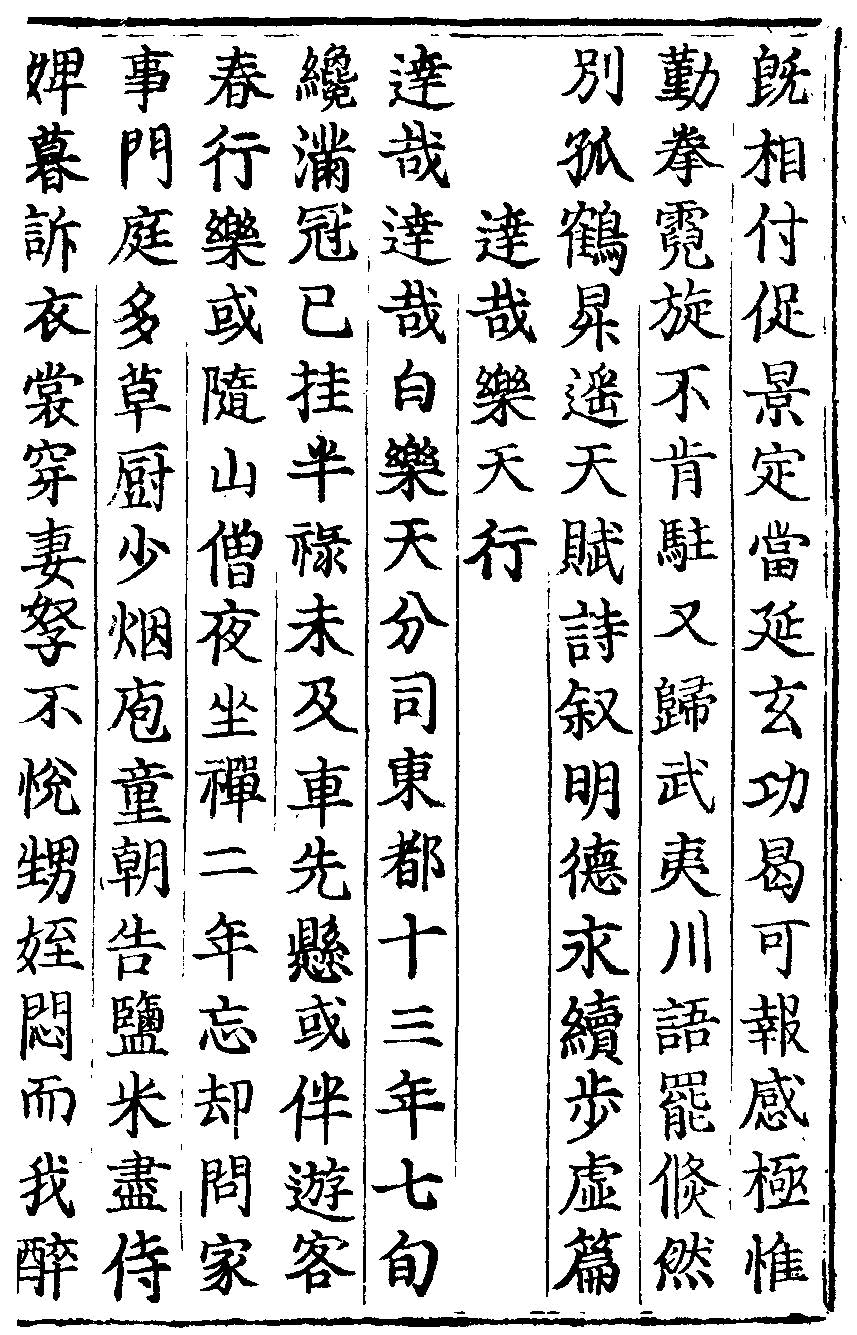 既相付促景定當延玄功曷可報感極惟
勤拳霓旋不肯駐又歸武夷川語罷倐然
別孤鶴昇遥天賦詩叙明德永續步虛篇
達哉樂天行
達哉達哉白樂天分司東都十三年七旬
纔滿冠已挂半祿未及車先懸或伴遊客
春行樂或隨山僧夜坐禪二年忘却問家
事門庭多草厨少烟庖童朝告鹽米盡侍
婢暮訴衣裳穿妻孥不悅甥姪悶而我醉